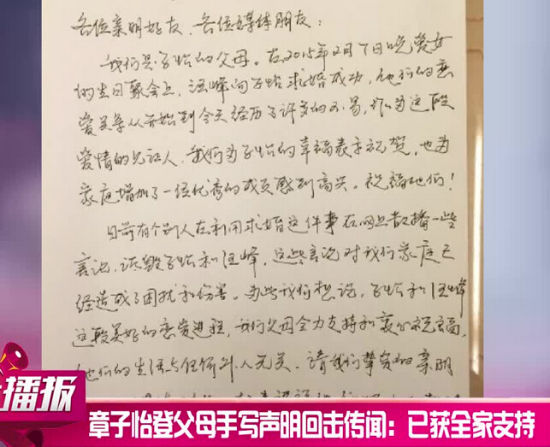 各位亲朋好友、各位媒体朋友:
我们是子怡的父母。在2015年2月7日晚爱女
的生日聚会上,汪峰向子怡求婚成功,他们的恋
爱关系从开始到今天经历了许多的不易,作为这段
爱情的见证人,我们为子怡的幸福表示祝贺,也为
家庭增加了一位优秀的成员感到高兴。祝福他们!
日前有个别人在利用求婚这件事在网上散播一些
言论,诋毁子怡和汪峰,这些言论对我们家庭已
经造成了困扰和伤害。为此我们想说,子怡和汪峰
这段美好的恋爱进程,我们父母全力支持和衷心祝福,
他们的生活与任何外人无关。请我们挚爱的亲朋
播报
章子怡登父母手写声明回击传闻:已获全家支持